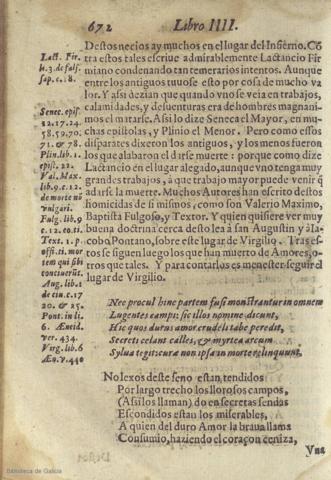 672 Libro IIII.
Destos necios ay muchos en el lugar del Infierno. Cõ
tra estos tales escriue admirablemente Lactancio Fir
miano condenando tan temerarios intentos. Aunque
entre los antiguos tuuose esto por cosa de mucho va
lor. Y assi dezian que quando vno se veia en trabajos,
calamidades, y desuenturas era de hombres magnani
mos el matarse. Assi lo dize Seneca el Mayor, en mu-
chas epistolas, y Plinio el Menor. Pero como essos
disparates dixeron los antiguos, y los menos fueron
los que alabaron el darse muerte: porque como dize
Lactancio en el lugar alegado, aunque vno tenga muy
grandes trabajos, a que trabajo mayor puede venir q̃
a darse la muerte. Muchos Autores han escrito destos
homicidas de si mismos, como son Valerio Maximo,
Baptista Fulgoso, y Textor. Y quien quisiere ver muy
buena doctrina cerca desto lea à san Augustin y à Ia-
cobo Pontano, sobre este lugar de Virgilio. Tras es-
tos se siguen luego los que han muerto de Amores, o-
tros que tales. Y para contarlos es menester seguir el
lugar de Virgilio.
Lact. Fir
li. 3. de fals.
sap. c. 8.
Senec. epis
12. 17. 24.
58. 59. 70.
71. & 78.
Plin. lib. 1.
epist. 22.
Val. Max.
lib. 9. c. 12.
de morte nõ
vulgari.
Fulg. lib. 9
c. 12. eo. ti.
Text. 1. p.
offi. ti. mor
tem qui sibi
conciuerũt.
Aug. lib. 1
de ciu. c. 17
20. & 25.
Pont. in li.
6. Æneid.
ver. 434.
Virg. lib. 6
Æn. ꝟ. 440
Nec procul hinc partem fusi monstrantur in omnem
Lugentes campi: sic illos nomine dicunt,
Hic quos durus amor crudeli tabe peredit,
Secreti celant calles, & myrtea circum
Sylua tegit: cura non ipsa in morte relinquunt.
No lexos deste seno estan tendidos
Por largo trecho los llorosos campos,
(Assi los llaman) do en secretas sendas
Escondidos estan los miserables,
A quien del duro Amor la braua llama
Consumio, haziendo el coraçon ceniza,
Vna
Biblioteca de Galicia